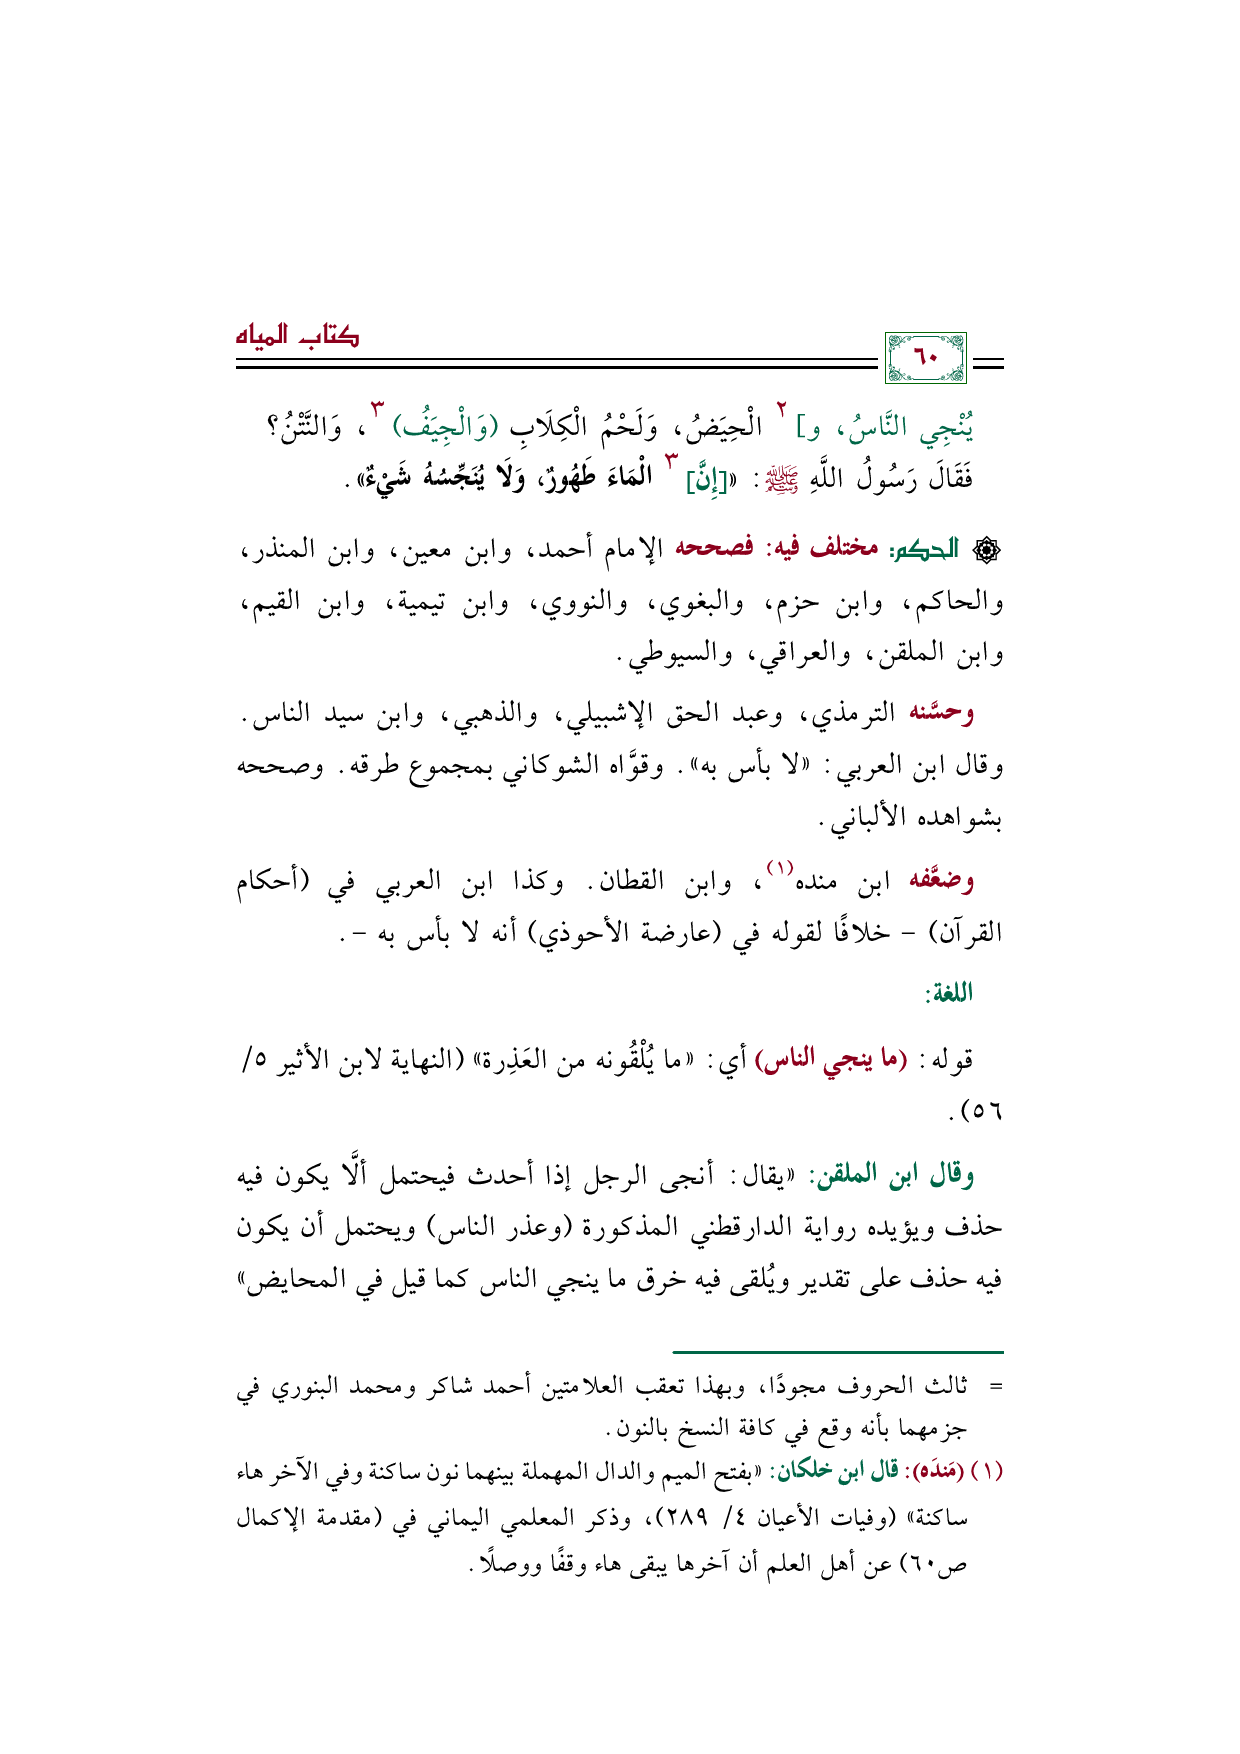 كتاب المياه
٦٠
يُنْجِي النَّاسُ، و] ٢ الْحِيَضُ، وَلَحْمُ الْكِلَابِ (وَالْجِيَفُ) ٣، وَالنَّتْنُ؟
فَقَالَ رَسُولُ اللَّهِ ﷺ: «[إِنَّ] ٣ الْمَاءَ طَهُورٌ، وَلَا يُنَجِّسُهُ شَيْءٌ».
الحكم: مختلف فيه: فصححه الإمام أحمد، وابن معين، وابن المنذر،
والحاكم، وابن حزم، والبغوي، والنووي، وابن تيمية، وابن القيم،
وابن الملقن، والعراقي، والسيوطي.
وحسَّنه الترمذي، وعبد الحق الإشبيلي، والذهبي، وابن سيد الناس.
وقال ابن العربي: «لا بأس به». وقوَّاه الشوكاني بمجموع طرقه. وصححه
بشواهده الألباني.
وضعَّفه ابن منده(١)، وابن القطان. وكذا ابن العربي في (أحكام
القرآن) – خلافًا لقوله في (عارضة الأحوذي) أنه لا بأس به –.
اللغة:
قوله: (ما ينجي الناس) أي: «ما يُلْقُونه من العَذِرة» (النهاية لابن الأثير ٥/
٥٦).
وقال ابن الملقن: «يقال: أنجى الرجل إذا أحدث فيحتمل ألَّا يكون فيه
حذف ويؤيده رواية الدارقطني المذكورة (وعذر الناس) ويحتمل أن يكون
فيه حذف على تقدير ويُلقى فيه خرق ما ينجي الناس كما قيل في المحايض»
= ثالث الحروف مجودًا، وبهذا تعقب العلامتين أحمد شاكر ومحمد البنوري في
جزمهما بأنه وقع في كافة النسخ بالنون.
(١) (مَندَه): قال ابن خلكان: «بفتح الميم والدال المهملة بينهما نون ساكنة وفي الآخر هاء
ساكنة» (وفيات الأعيان ٤/ ٢٨٩)، وذكر المعلمي اليماني في (مقدمة الإكمال
ص٦٠) عن أهل العلم أن آخرها يبقى هاء وقفًا ووصلًا.